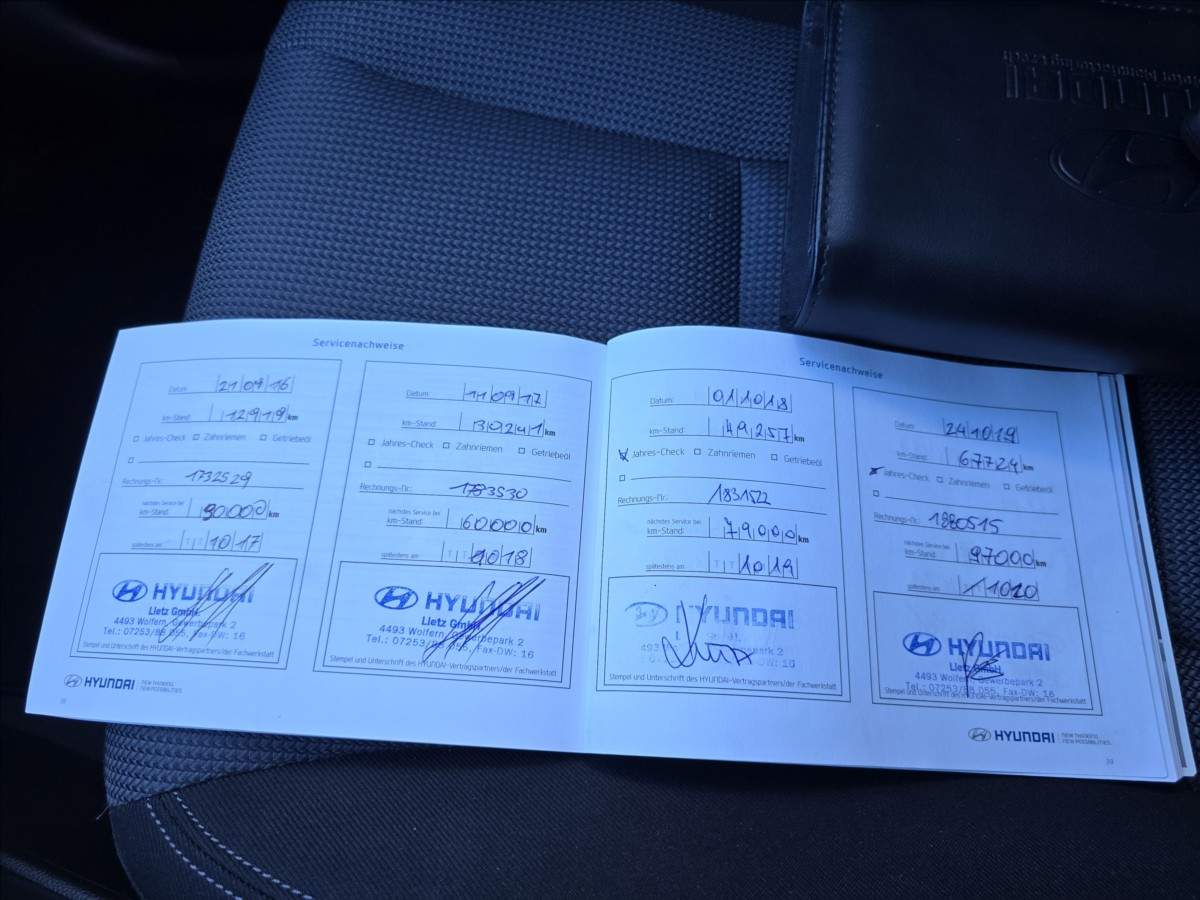 Servicenachweise
Datum: 21 09 16
km-Stand: 12919 km
Jahres-Check Zahnriemen Getriebeöl
Rechnungs-Nr.: 1732529
nächstes Service bei
km-Stand: 30000 km
spätestens am: 10 17
HYUNDAI
Lietz GmbH
4493 Wolfern, Gewerbepark 2
Tel.: 07253/88 055, Fax-DW: 16
Stempel und Unterschrift des HYUNDAI-Vertragspartners/der Fachwerkstatt
Datum: 11 09 17
km-Stand: 30241 km
Jahres-Check Zahnriemen Getriebeöl
Rechnungs-Nr.: 1783530
nächstes Service bei
km-Stand: 60000 km
spätestens am: 018
HYUNDAI
Lietz GmbH
4493 Wolfern, Gewerbepark 2
Tel.: 07253/88 055, Fax-DW: 16
Stempel und Unterschrift des HYUNDAI-Vertragspartners/der Fachwerkstatt
HYUNDAI NEW THINKING. NEW POSSIBILITIES.
Servicenachweise
Datum: 01 10 18
km-Stand: 49257 km
Jahres-Check Zahnriemen Getriebeöl
Rechnungs-Nr.: 1831522
nächstes Service bei
km-Stand: 79000 km
spätestens am: 10 19
HYUNDAI
Fax-DW: 16
Stempel und Unterschrift des HYUNDAI-Vertragspartners/der Fachwerkstatt
Datum: 24 10 19
km-Stand: 67724 km
Jahres-Check Zahnriemen Getriebeöl
Rechnungs-Nr.: 1880515
nächstes Service bei
km-Stand: 97000 km
spätestens am: 1020
HYUNDAI
Lietz GmbH
4493 Wolfern, Gewerbepark 2
Tel.: 07253/88 055, Fax-DW: 16
Stempel und Unterschrift des HYUNDAI-Vertragspartners/der Fachwerkstatt
HYUNDAI NEW THINKING. NEW POSSIBILITIES.
39